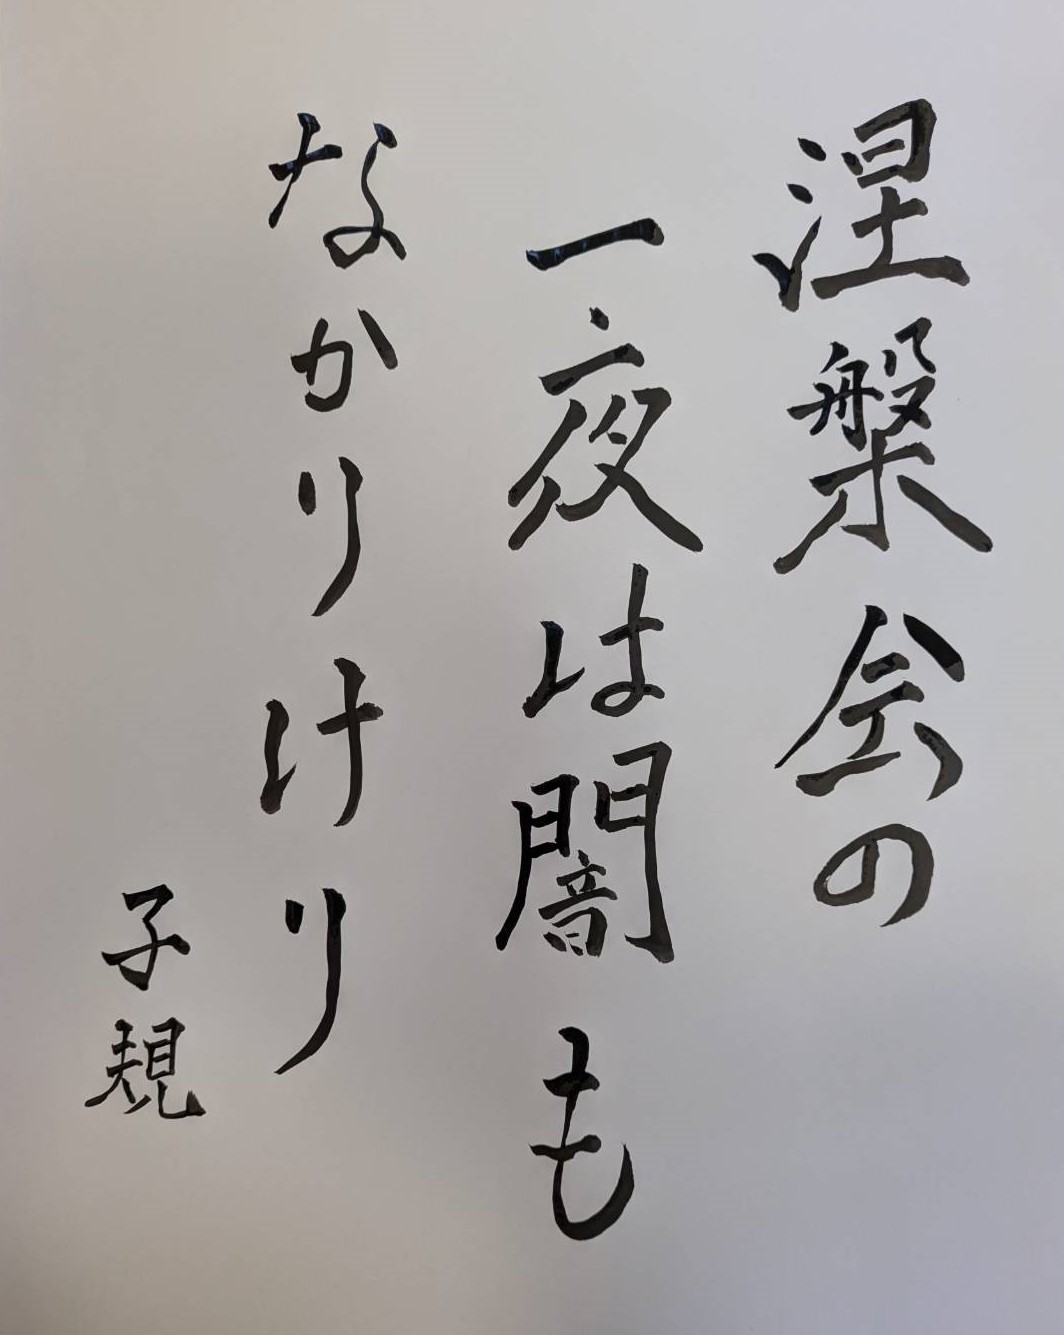 涅槃会の
一夜は闇も
なかりけり
子規